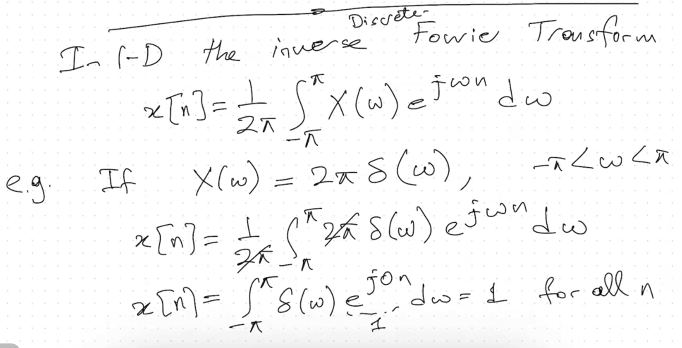 In 1-D the inverse Discrete- Fourie Transform
x[n] = 1/2π ∫_{-π}^{π} X(ω) e^{jωn} dω
e.g. If X(ω) = 2π δ(ω), -π < ω < π
x[n] = 1/2π ∫_{-π}^{π} 2π δ(ω) e^{jωn} dω
x[n] = ∫_{-π}^{π} δ(ω) e^{j0n} dω = 1 for all n
1